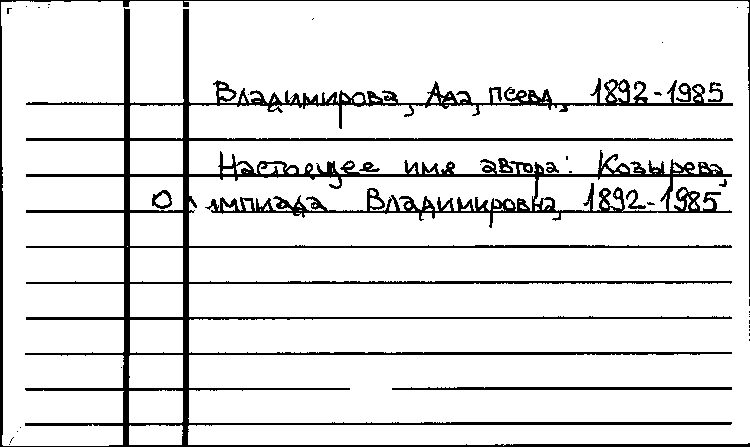 Владимирова, Ада, псевд., 1892-1985
Настоящее имя автора: Козырева,
Олимпиада Владимировна, 1892-1985